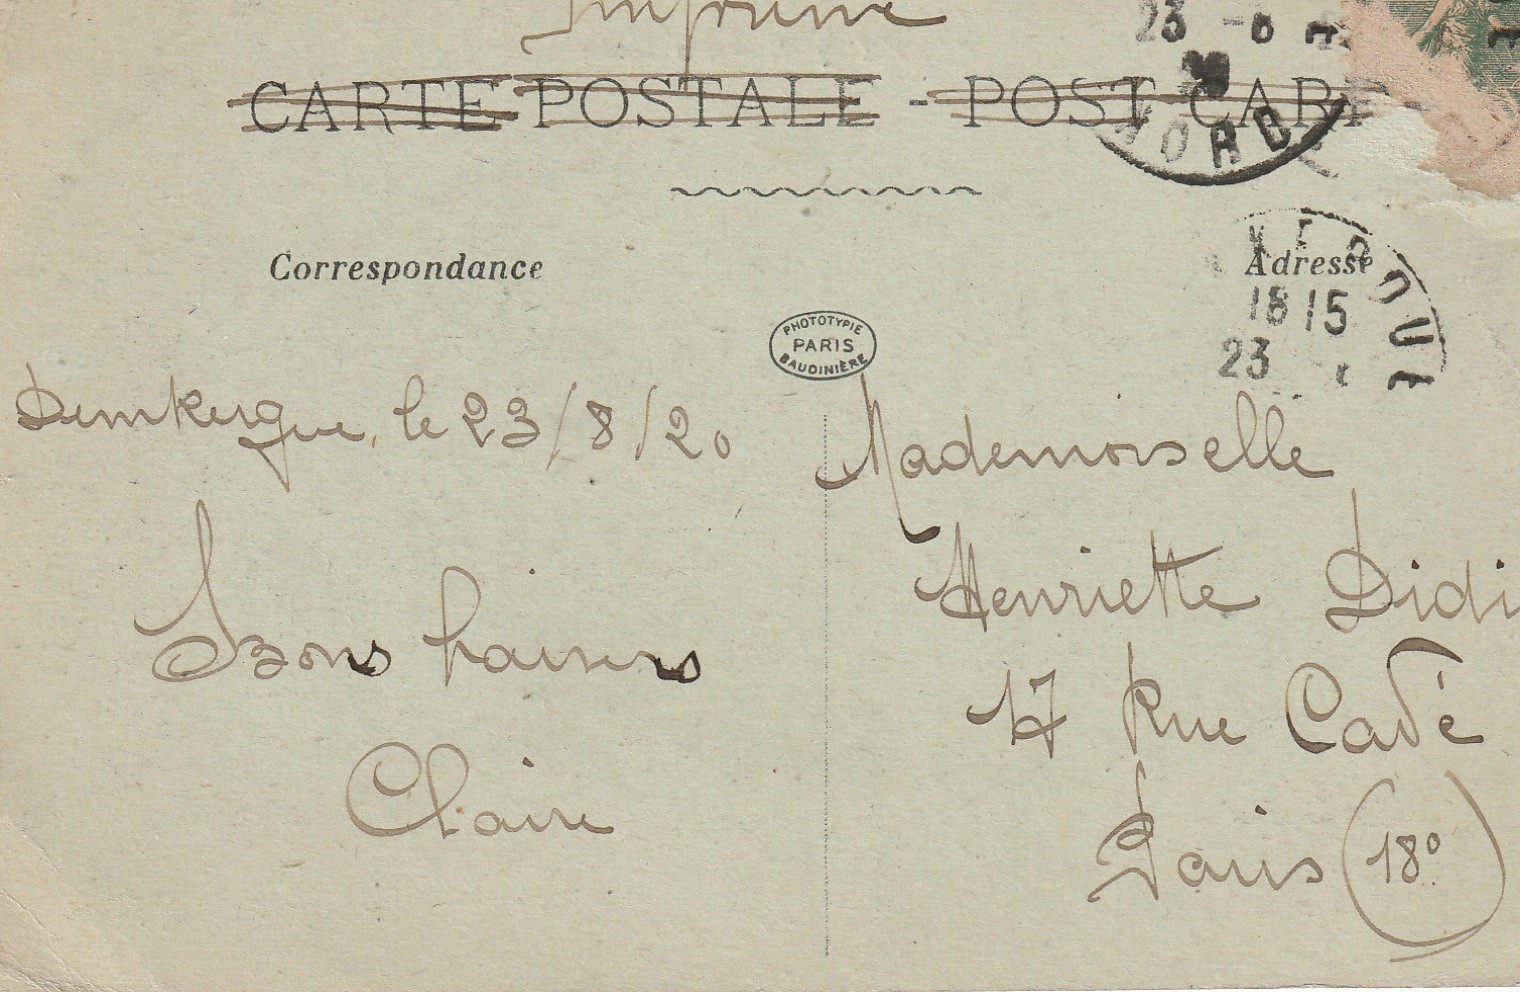 Imprimé
23 -8
20
CARTE POSTALE - POST CARD
NORD
Correspondance
Adresse
18 15
23
PHOTOTYPIE
PARIS
BAUDINIÈRE
Dunkerque, le 23/8/20
Mademoiselle
Henriette Didi
Bons baisers
17 Rue Cavé
Claire
Paris (18º)